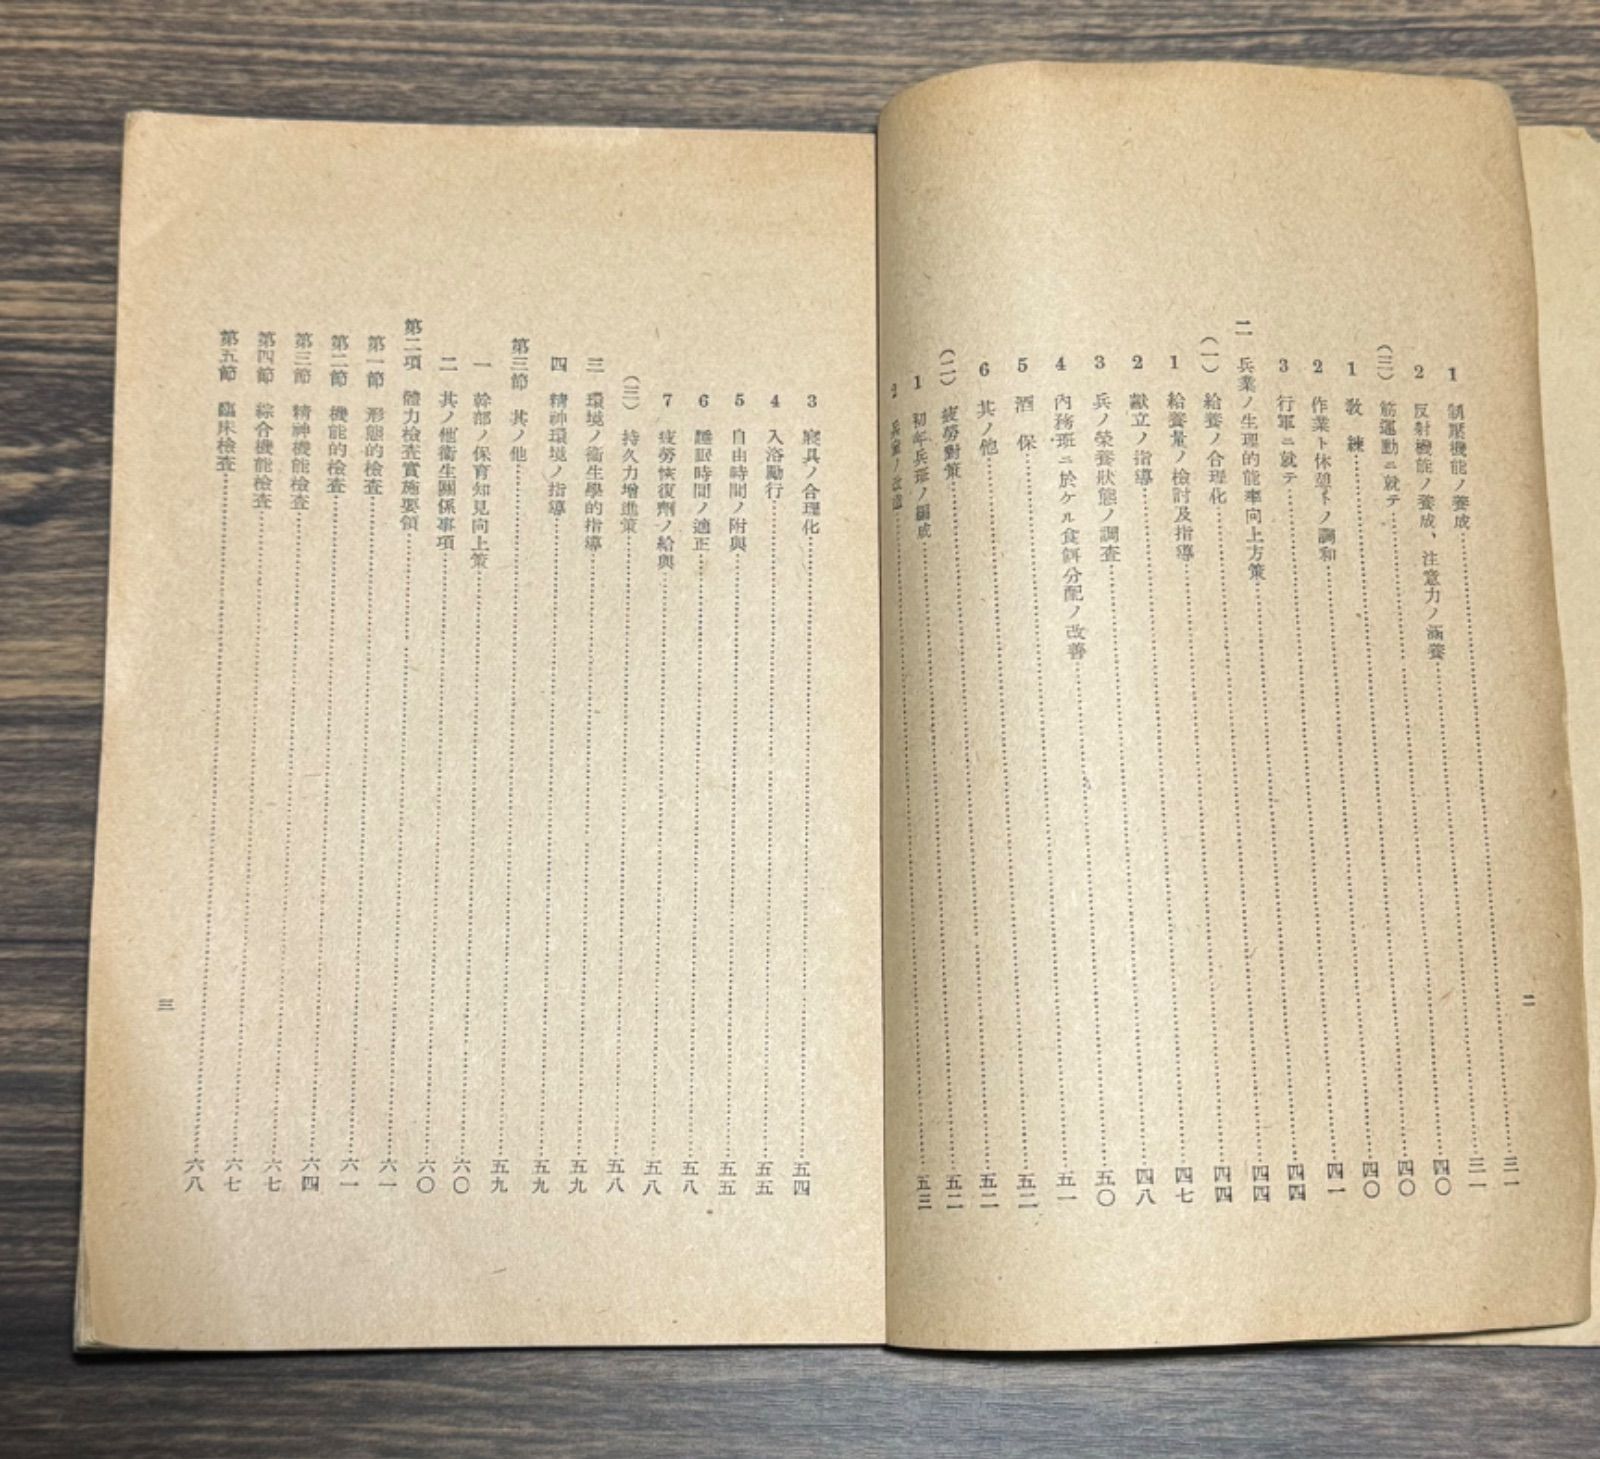 二
1 制壓機能ノ養成……三一
2 反射機能ノ養成、注意力ノ涵養……三一
(三) 筋運動ニ就テ……四〇
1 敎練……四〇
2 作業ト休憩トノ調和……四〇
3 行軍ニ就テ……四一
二 兵業ノ生理的能率向上方策……四四
(一) 給養ノ合理化……四四
1 給養量ノ檢討及指導……四四
2 獻立ノ指導……四七
3 兵ノ榮養狀態ノ調査……四八
4 內務班ニ於ケル食餌分配ノ改善……五〇
5 酒保……五一
6 其ノ他……五二
(二) 疲勞對策……五二
1 初年兵班ノ編成……五二
2 兵室ノ改造……五三
3 寢具ノ合理化……五四
4 入浴勵行……五五
5 自由時間ノ附與……五五
6 睡眠時間ノ適正……五八
7 疲勞恢復劑ノ給與……五八
(三) 持久力增進策……五八
三 環境ノ衞生學的指導……五九
四 精神環境ノ指導……五九
第三節 其ノ他……五九
一 幹部ノ保育知見向上策……六〇
二 其ノ他衞生關係事項……六〇
第二項 體力檢査實施要領……六一
第一節 形態的檢査……六一
第二節 機能的檢査……六四
第三節 精神機能檢査……六七
第四節 綜合機能檢査……六七
第五節 臨床檢査……六八
三